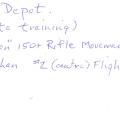 Depot.
to training)
on" 150+ Rifle Movemen
han #2 (centre) Flight